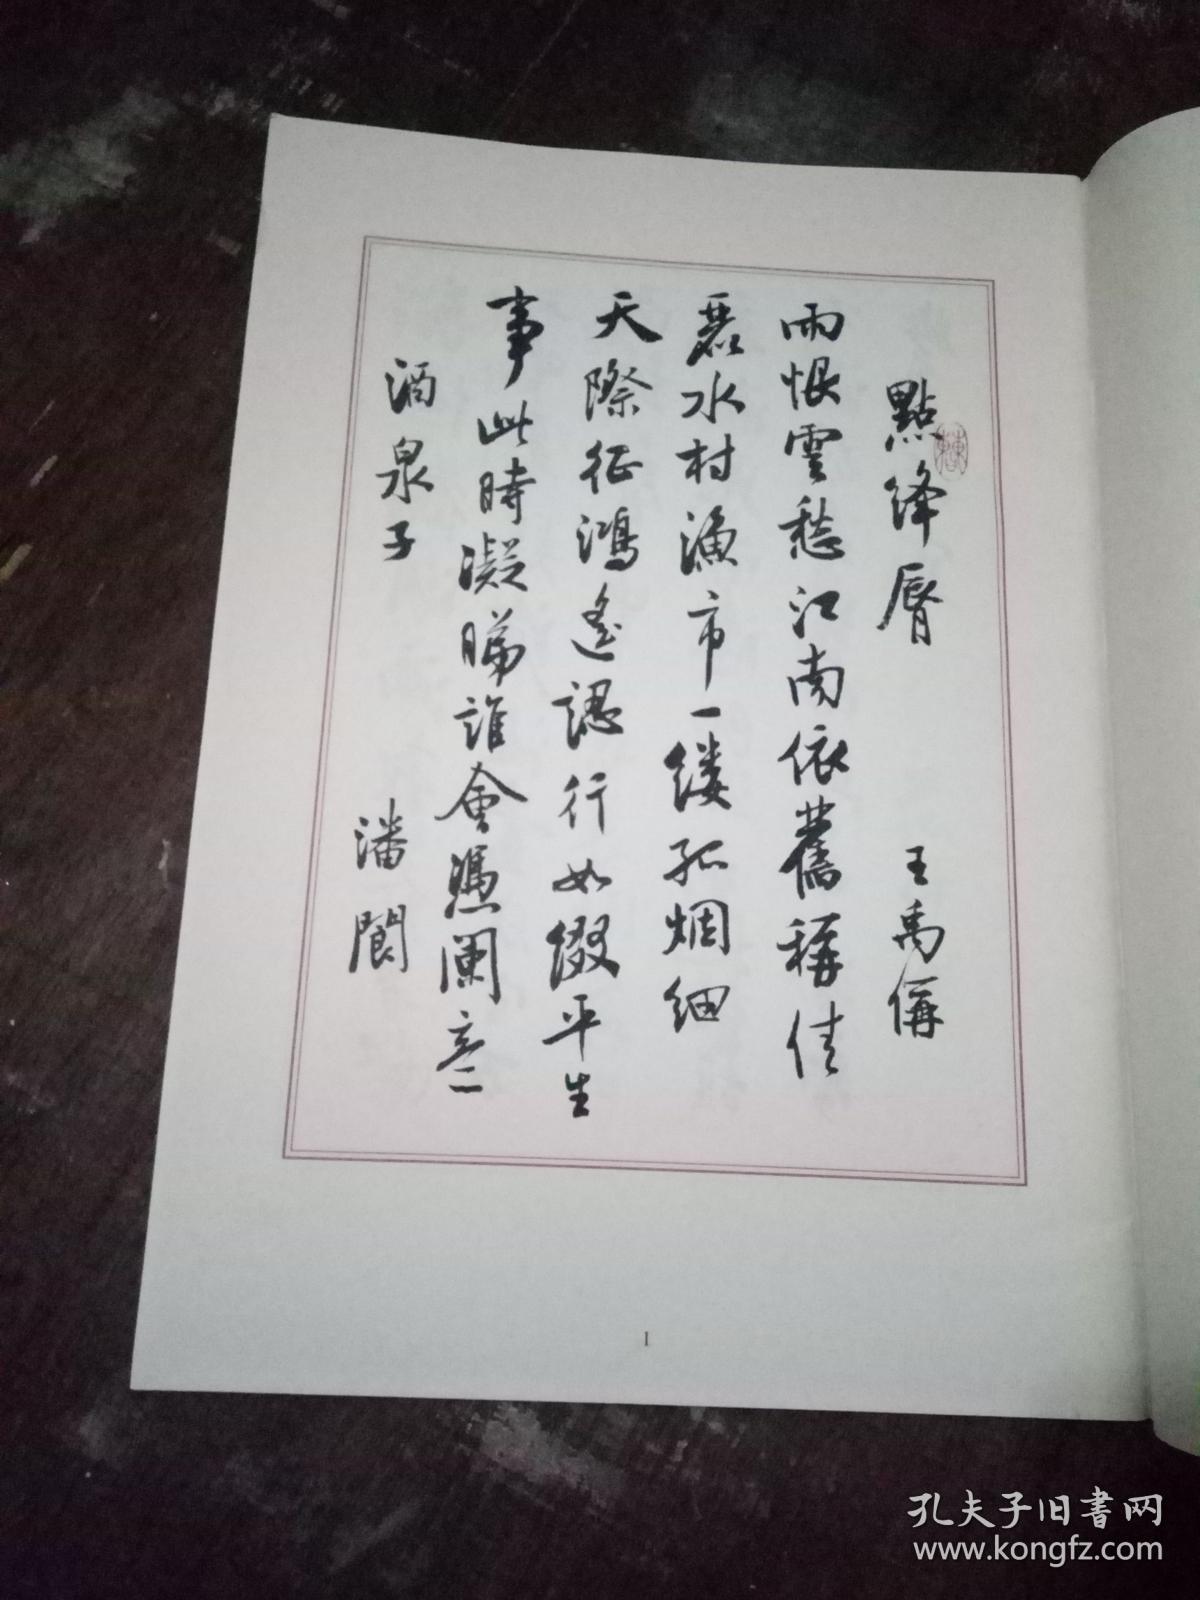 點絳脣 王禹偁
雨恨雲愁江南依舊稱佳
麗水村漁市一縷孤烟細
天際征鴻遙認行如綴平生
事此時凝睇誰會憑闌意
酒泉子 潘閬
1
孔夫子旧书网
www.kongfz.com